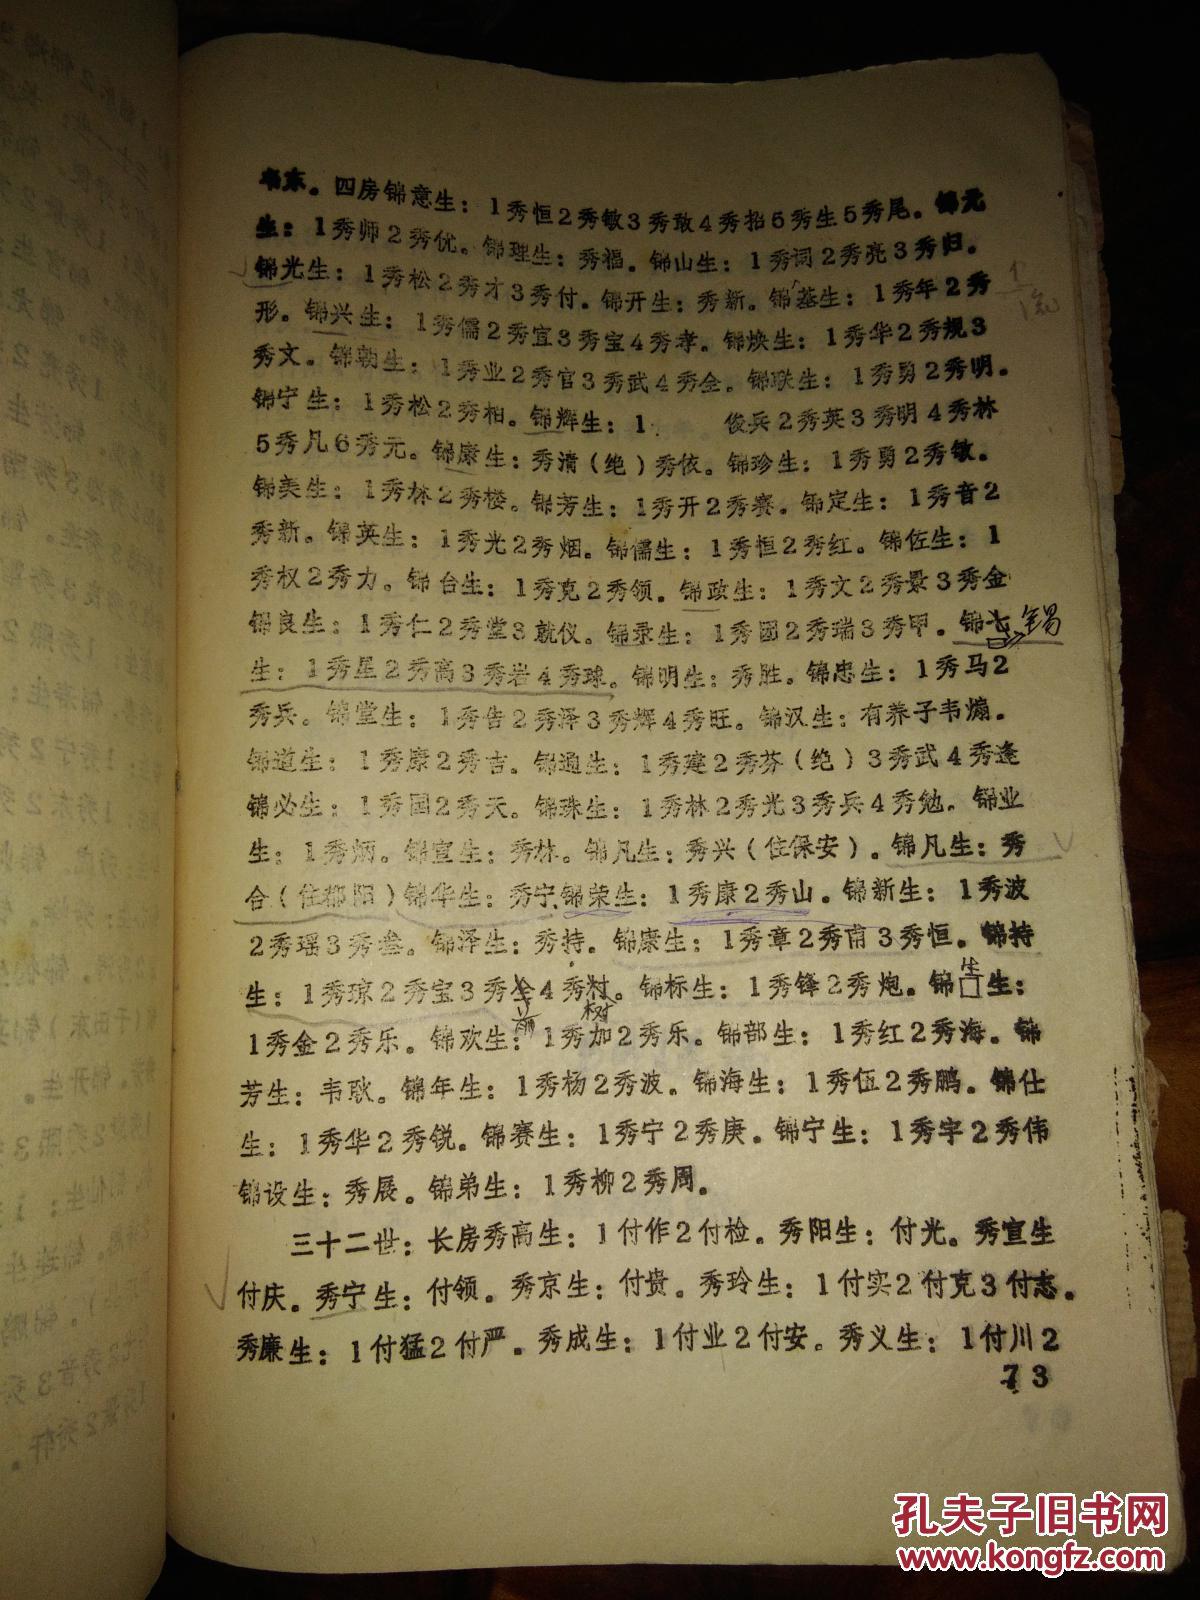 韦东。四房锦意生：1秀恒2秀敏3秀敢4秀招5秀生5秀尾。锦元
生：1秀师2秀优。锦理生：秀福。锦山生：1秀词2秀亮3秀归。
锦光生：1秀松2秀才3秀付。锦开生：秀新。锦基生：1秀年2秀
形。锦兴生：1秀儒2秀宜3秀宝4秀孝。锦焕生：1秀华2秀规3
秀文。锦朝生：1秀业2秀官3秀武4秀全。锦联生：1秀勇2秀明。
锦宁生：1秀松2秀柏。锦辉生：1 俊兵2秀英3秀明4秀林
5秀凡6秀元。锦康生：秀清（绝）秀依。锦珍生：1秀勇2秀敏。
锦美生：1秀林2秀楼。锦芳生：1秀开2秀赛。锦定生：1秀音2
秀新。锦英生：1秀光2秀烟。锦儒生：1秀恒2秀红。锦佐生：1
秀权2秀力。锦台生：1秀克2秀领。锦政生：1秀文2秀景3秀金
锦良生：1秀仁2秀堂3就仪。锦录生：1秀团2秀瑞3秀甲。锦 锡
生：1秀星2秀高3秀岩4秀球。锦明生：秀胜。锦忠生：1秀马2
秀兵。锦堂生：1秀告2秀泽3秀辉4秀旺。锦汉生：有养子韦煽。
锦道生：1秀康2秀吉。锦通生：1秀建2秀芬（绝）3秀武4秀逢
锦必生：1秀国2秀天。锦珠生：1秀林2秀光3秀兵4秀勉。锦业
生：1秀炳。锦宣生：秀林。锦凡生：秀兴（住保安）。锦凡生：秀
合（住郁阳）锦华生：秀宁、锦荣生：1秀康2秀山。锦新生：1秀波
2秀瑶3秀叁。锦泽生：秀持。锦康生：1秀章2秀甫3秀恒。锦持
生：1秀琼2秀宝3秀全4秀村。锦标生：1秀锋2秀炮。锦□生：
树
1秀金2秀乐。锦欢生：1秀加2秀乐。锦部生：1秀红2秀海。锦
芳生：韦耿。锦年生：1秀杨2秀波。锦海生：1秀伍2秀鹏。锦仕
生：1秀华2秀锐。锦赛生：1秀宁2秀庚。锦宁生：1秀宇2秀伟
锦设生：秀展。锦弟生：1秀柳2秀周。
三十二世：长房秀高生：1付作2付检。秀阳生：付光。秀宣生
付庆。秀宁生：付领。秀京生：付贵。秀玲生：1付实2付克3付志。
秀廉生：1付猛2付严。秀成生：1付业2付安。秀义生：1付川2
73
孔夫子旧书网
www.kongfz.com